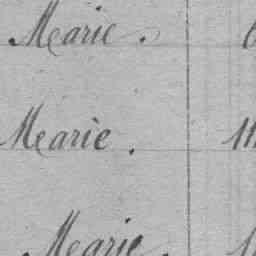 Marie.
Marie.
Marie.